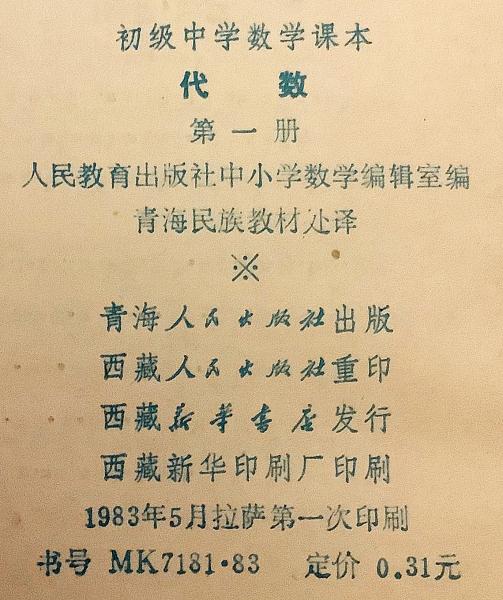 初级中学数学课本
代 数
第一册
人民教育出版社中小学数学编辑室编
青海民族教材处译
※
青海人民出版社出版
西藏人民出版社重印
西藏新華書店发行
西藏新华印刷厂印刷
1983年5月拉萨第一次印刷
书号 MK7181·83 定价 0.31元